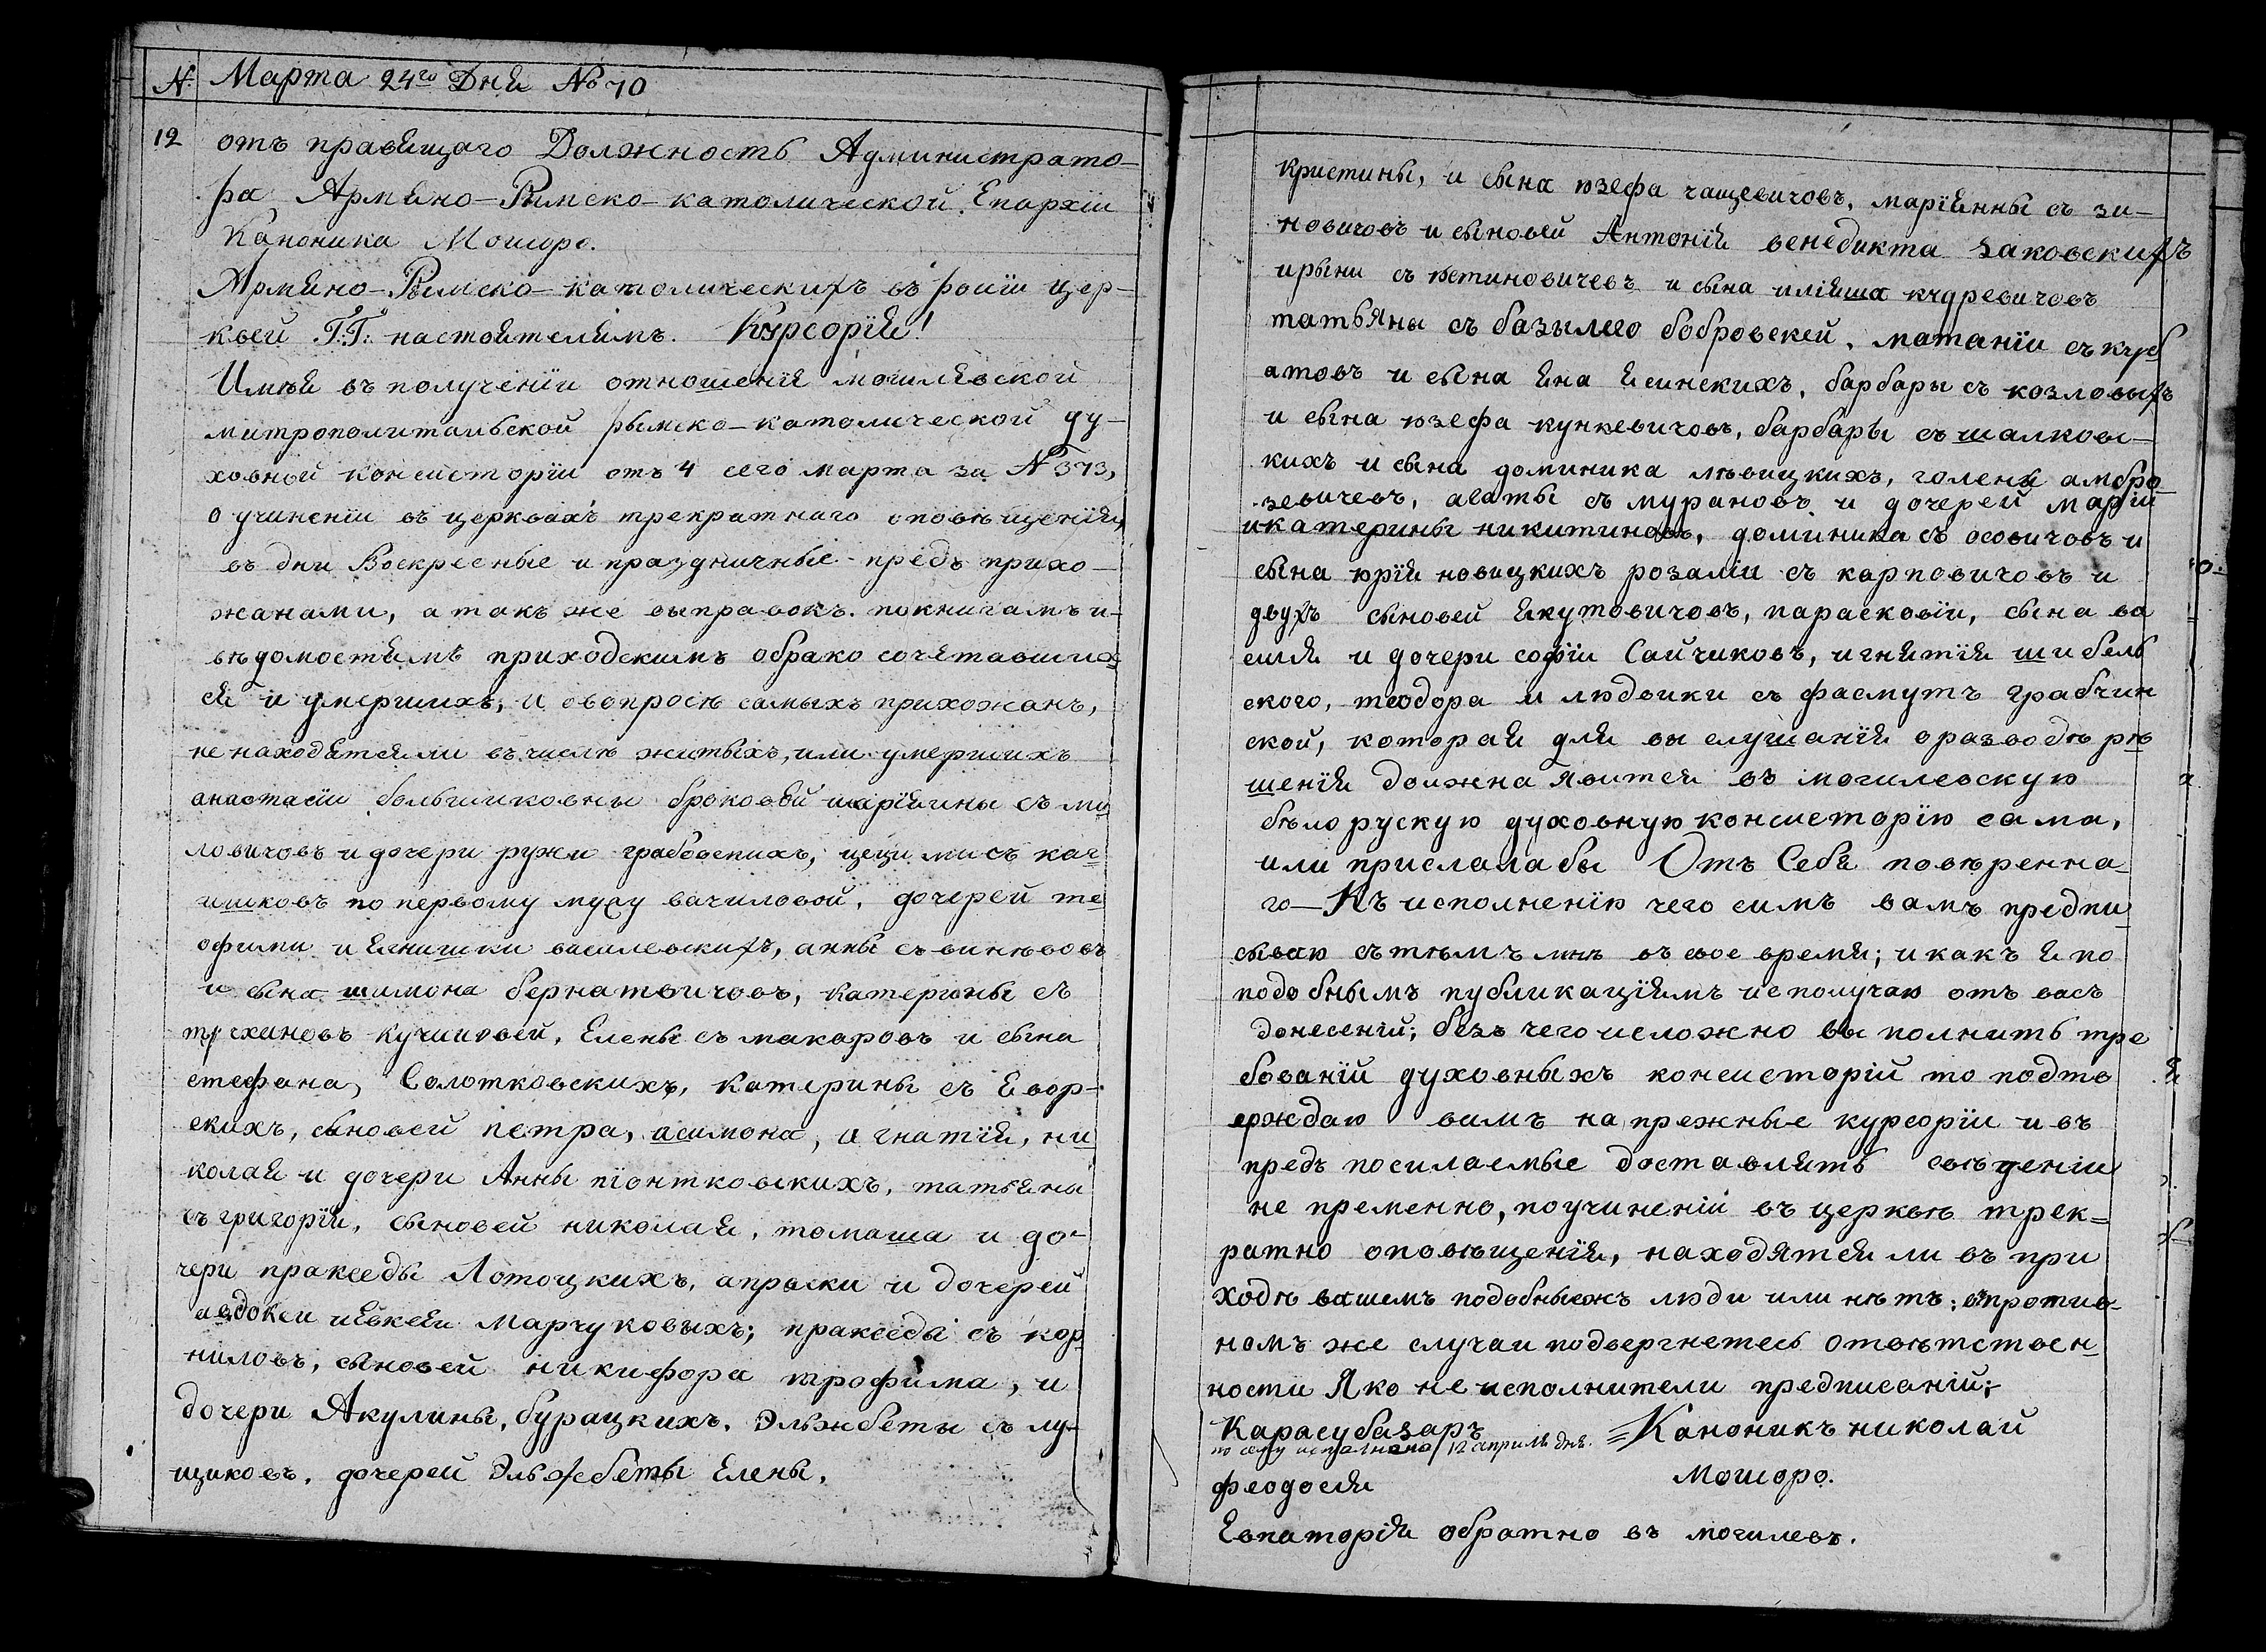 № Марта 24го Дня №70
12 отъ правящаго Должность Администрато-
ра Армяно-Римско-католической Епархіи
Каноника Мошоро.
Армяно-Римско-католическихъ въ росіи цер-
квей Г.Г: настоятелямъ. Курсорія!
Имѣя въ полученіи отношенія могилевской
митрополитальской рымско-католической ду-
ховной консисторіи отъ 4 сего марта за №373,
о учиненіи въ церквахъ трекратнаго оповѣщенія,
въ дни Воскресные и праздничные предъ прихо-
жанами, а такъ же выправокъ покнигамъ и
вѣдомостямъ приходскимъ обрако сочетавших
ся и умершихъ, и овопросѣ самыхъ прихожанъ,
не находятсяли въ числѣ житыхъ, или умершихъ
анастасіи большиковны броковой маріяны съ ми
ловичовъ и дочери ружи грабовскихъ, цецилии съ кач
ишковъ по первому мужу вачиловой, дочерей те
офили и ягнишки василевскихъ, анны съ винѣвовъ
и сына шимона бернатвичовъ, катерины съ
трухиновъ кучиновей, Елены съ макаровъ и сына
стефана, Солотковскихъ, Катерины съ Евор-
скихъ, сыновей петра, асимона, игнатія, ни
колая и дочери Анны піонтковскихъ, татьяны
съ григорія, сыновей николая, томаша и до-
чери пракседы Лотоцкихъ, апраски и дочерей
авдокеи иевкеи Марчуковыхъ; пракседы съ кор
ниловъ, сыновей никифора трофима, и
дочери Акулины, бурацкихъ, Эльжбеты съ лу-
щиковъ, дочерей Эльжбеты Елены,
кристины, и сына юзефа чащевичовъ, маріянны съ зи-
новичовъ и сыновей Антонія венедикта заковскихъ
ирыни съ устиновичевъ и сына иліяша кудревичовъ
татьяны съ базылего бобровскей, матаніи съ кусб
атовъ и сына яна ясинскихъ, барбары съ козловыхъ
и сына юзефа кункевичовъ, барбары съ шалковс-
кихъ и сына доминика лѣвицкихъ, голены амбро
зевичевъ, агаты съ мурановъ и дочерей маріи
икатерины никитиновъ, доминика съ осовичовъ и
сына юрія новицкихъ розаліи съ карповичовъ и
двухъ сыновей якутовичовъ, парасковіи, сына ва
силя и дочери софіи Сайчиковъ, игнятія шибель
ского, теодора и людвики съ фасмутъ грабчин
ской, которая для выслушанія о разводѣ рѣ
шенія должна явится въ могилевскую
бѣлорускую духовную консисторію сама,
или прислала бы Отъ Себя повѣренна
го — Къ исполненію чего симъ вамъ предпи
сываю съ тѣмъ мнѣ въ свое время; и какъ я по
подобнымъ публикаціямъ неполучаю отъ васъ
донесеній; безъ чего неможно выполнить тре
бованій духовныхъ консисторій то подтв
ерждаю вамъ на прежные курсоріи и въ
предъ посилаемые доставлять свѣденіи
не пременно, поучиненіи въ церквѣ трек=
ратно оповѣщенія, находятся ли въ при
ходѣ вашемъ подобныежъ люди или нѣтъ; въпротив-
номъ же случаи подвергнетесь отвѣтствен
ности Яко не исполнители предписаній;
Карасубазаръ =Каноникъ николай
по сему исполнено 12 априля дня.
феодосія Мошоро.
Евпаторія обратно въ могилевъ.